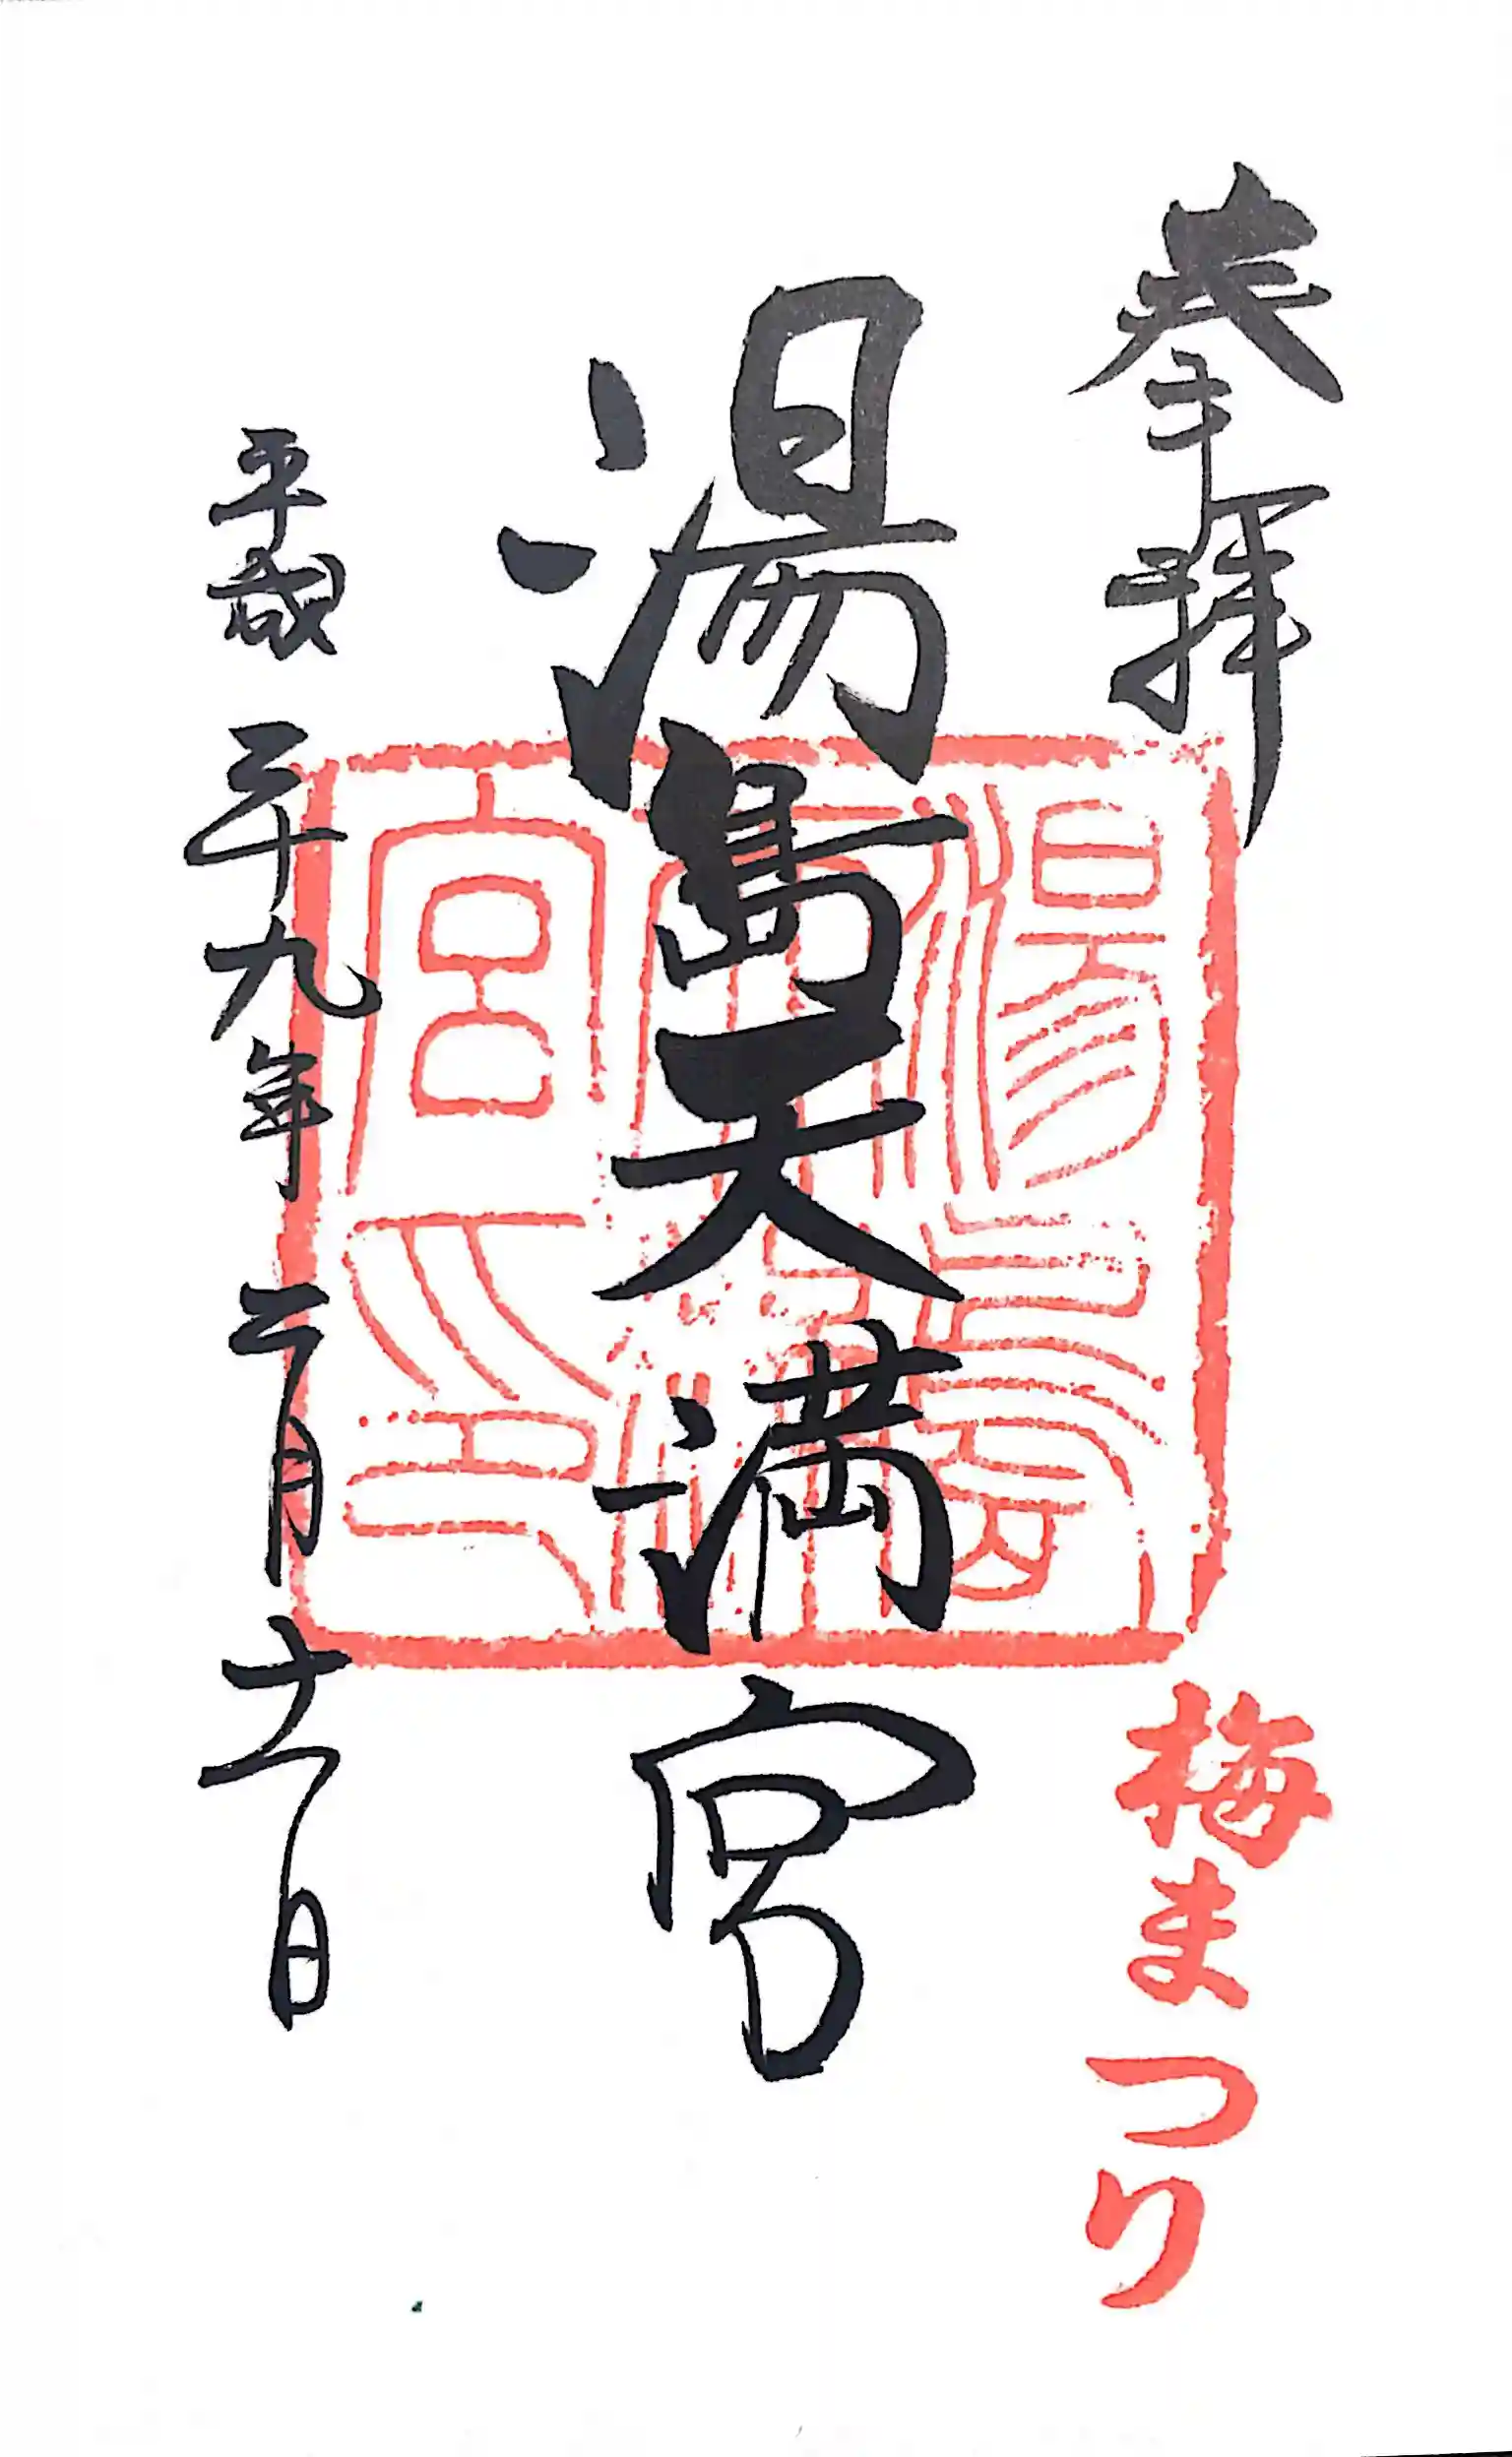 奉拝
梅まつり
湯島天満宮
湯島
天満
宮印
平成二十九年二月十一日